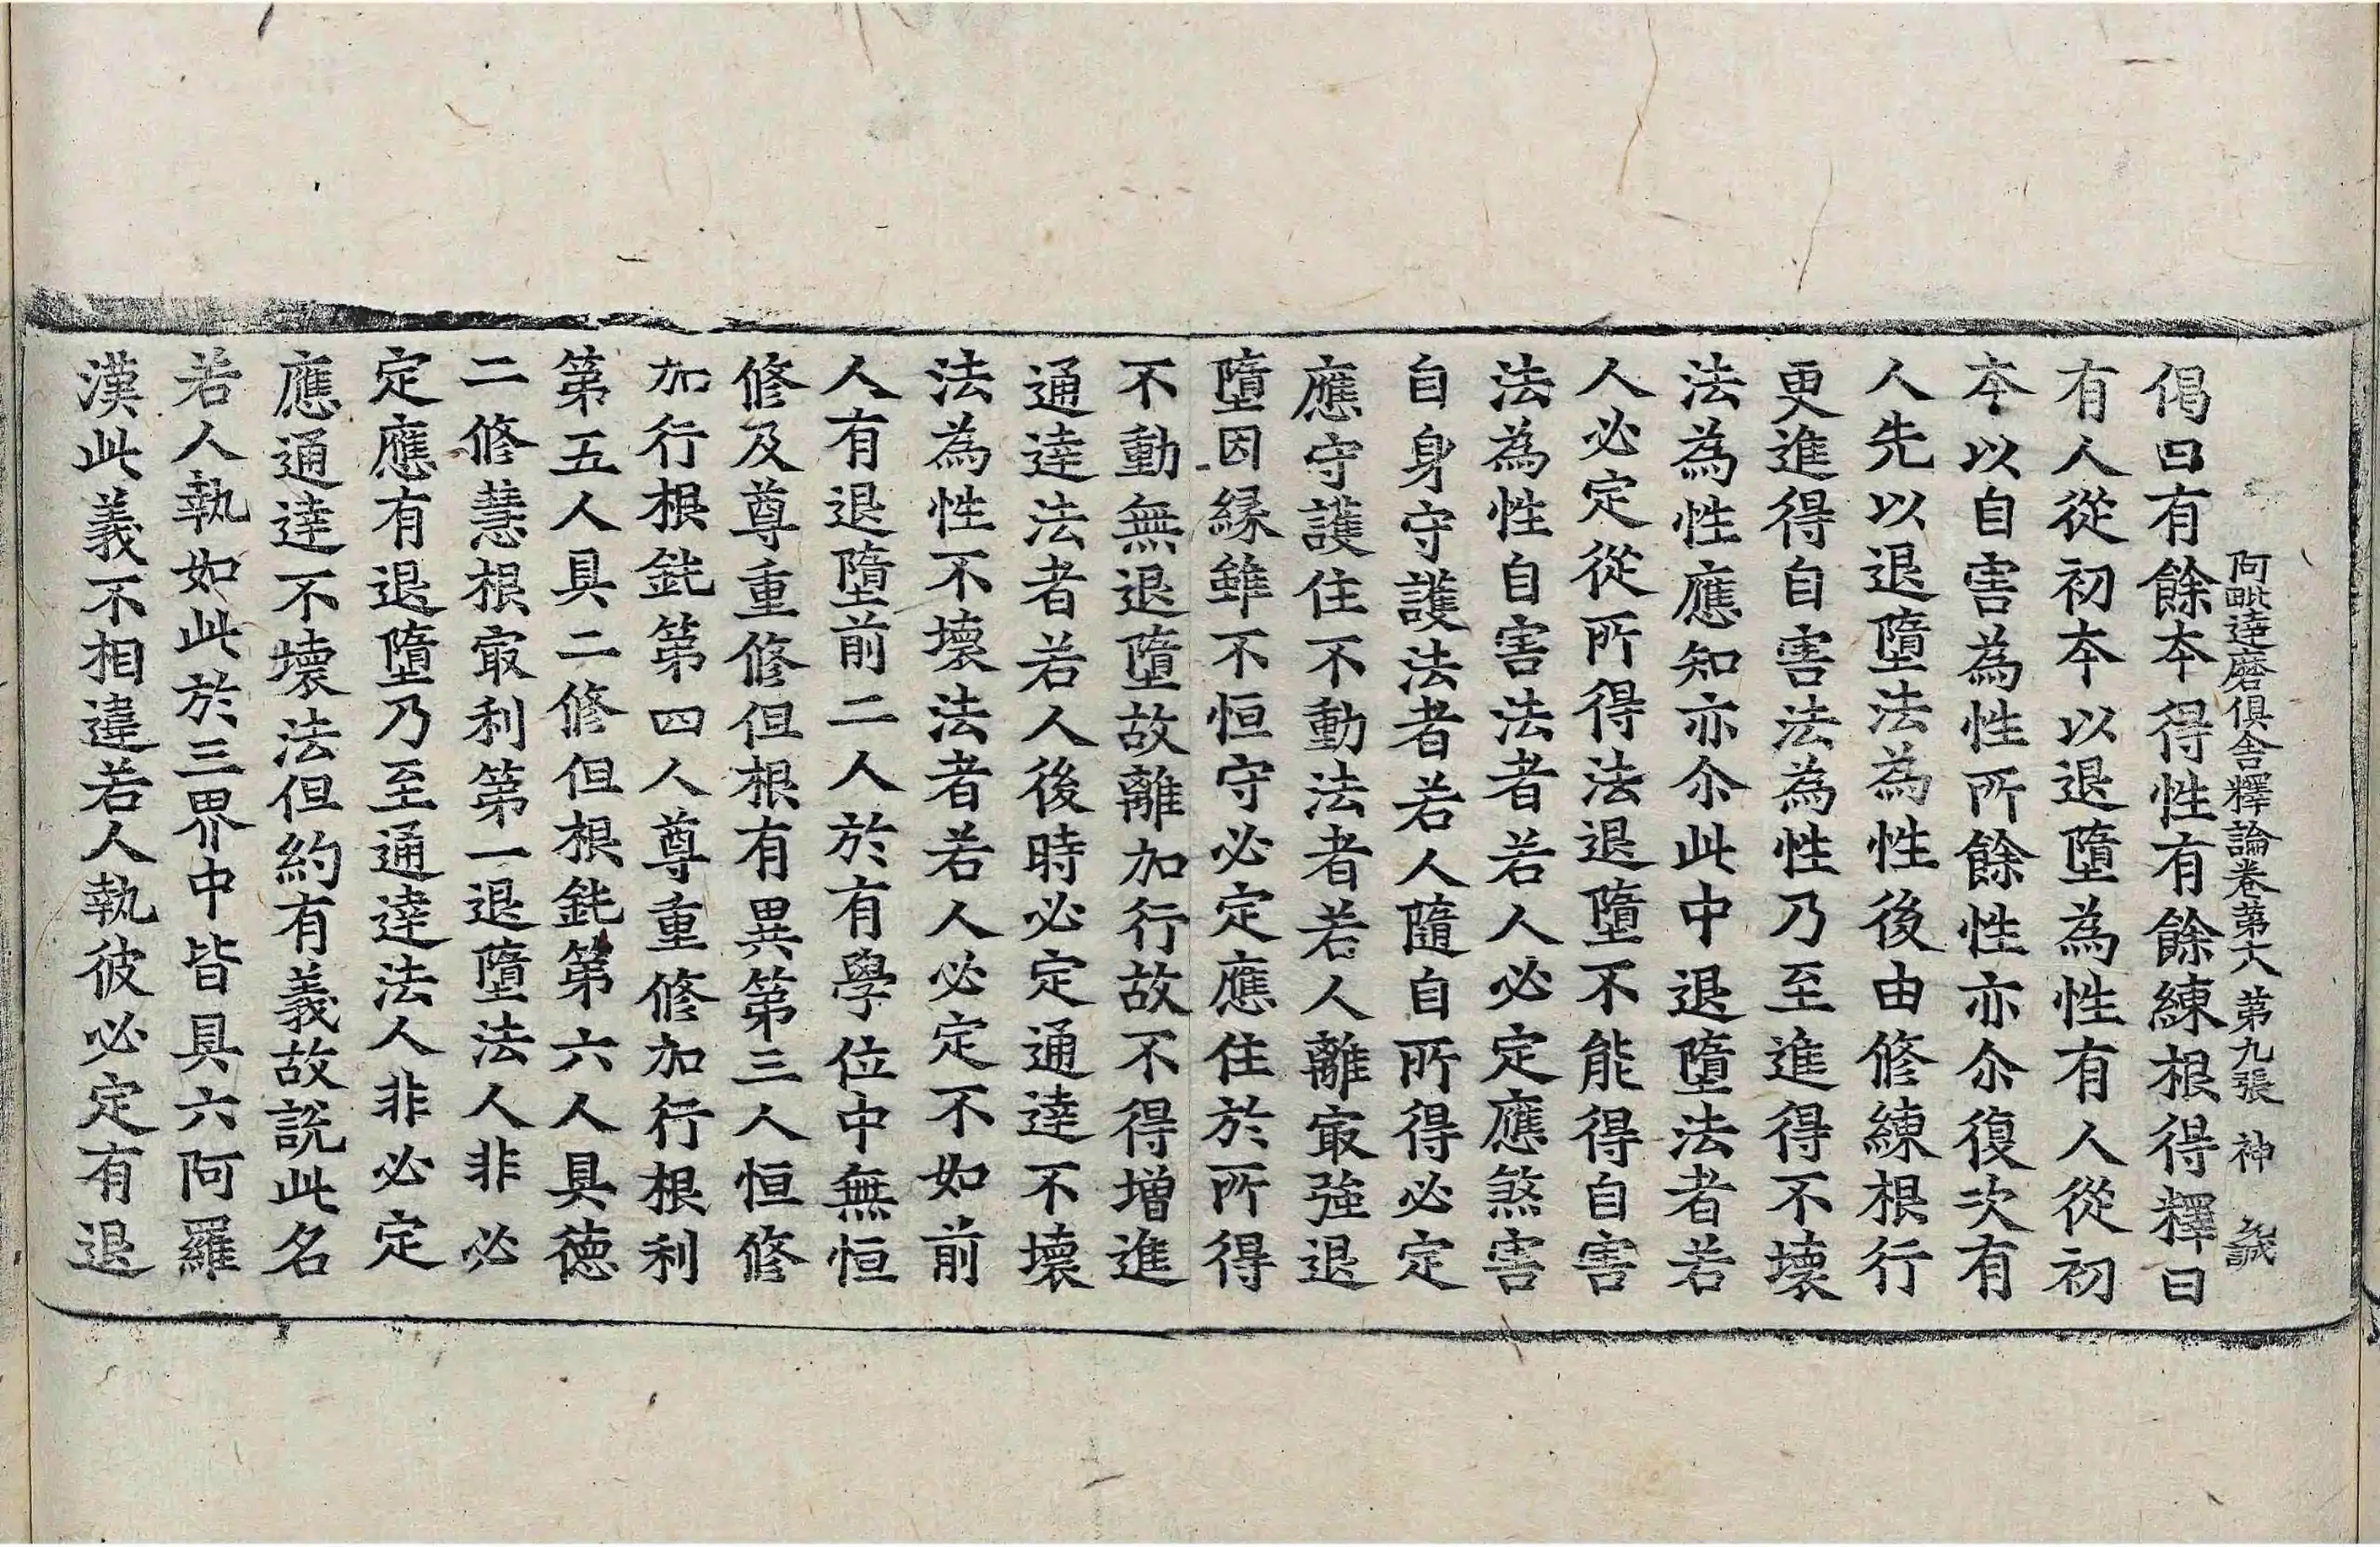 阿毗達磨俱舍釋論卷第十八 第九張 神
偈曰有餘本得性有餘練根得釋曰
有人從初本以退墮為性有人從初
本以自害為性所餘性亦尒復次有
人先以退墮法為性後由修練根行
更進得自害法為性乃至進得不壞
法為性應知亦尒此中退墮法者若
人必定從所得法退墮不能得自害
法為性自害法者若人必定應煞害
自身守護法者若人隨自所得必定
應守護住不動法者若人離冣強退
墮因緣雖不恒守必定應住於所得
不動無退墮故離加行故不得增進
通達法者若人後時必定通達不壞
法為性不壞法者若人必定不如前
人有退墮前二人於有學位中無恒
修及尊重修但根有異第三人恒修
加行根鈍第四人尊重修加行根利
第五人具二修但根鈍第六人具德
二修慧根冣利第一退墮法人非必
定應有退墮乃至通達法人非必定
應通達不壞法但約有義故説此名
若人執如此於三界中皆具六阿羅
漢此義不相違若人執彼必定有退